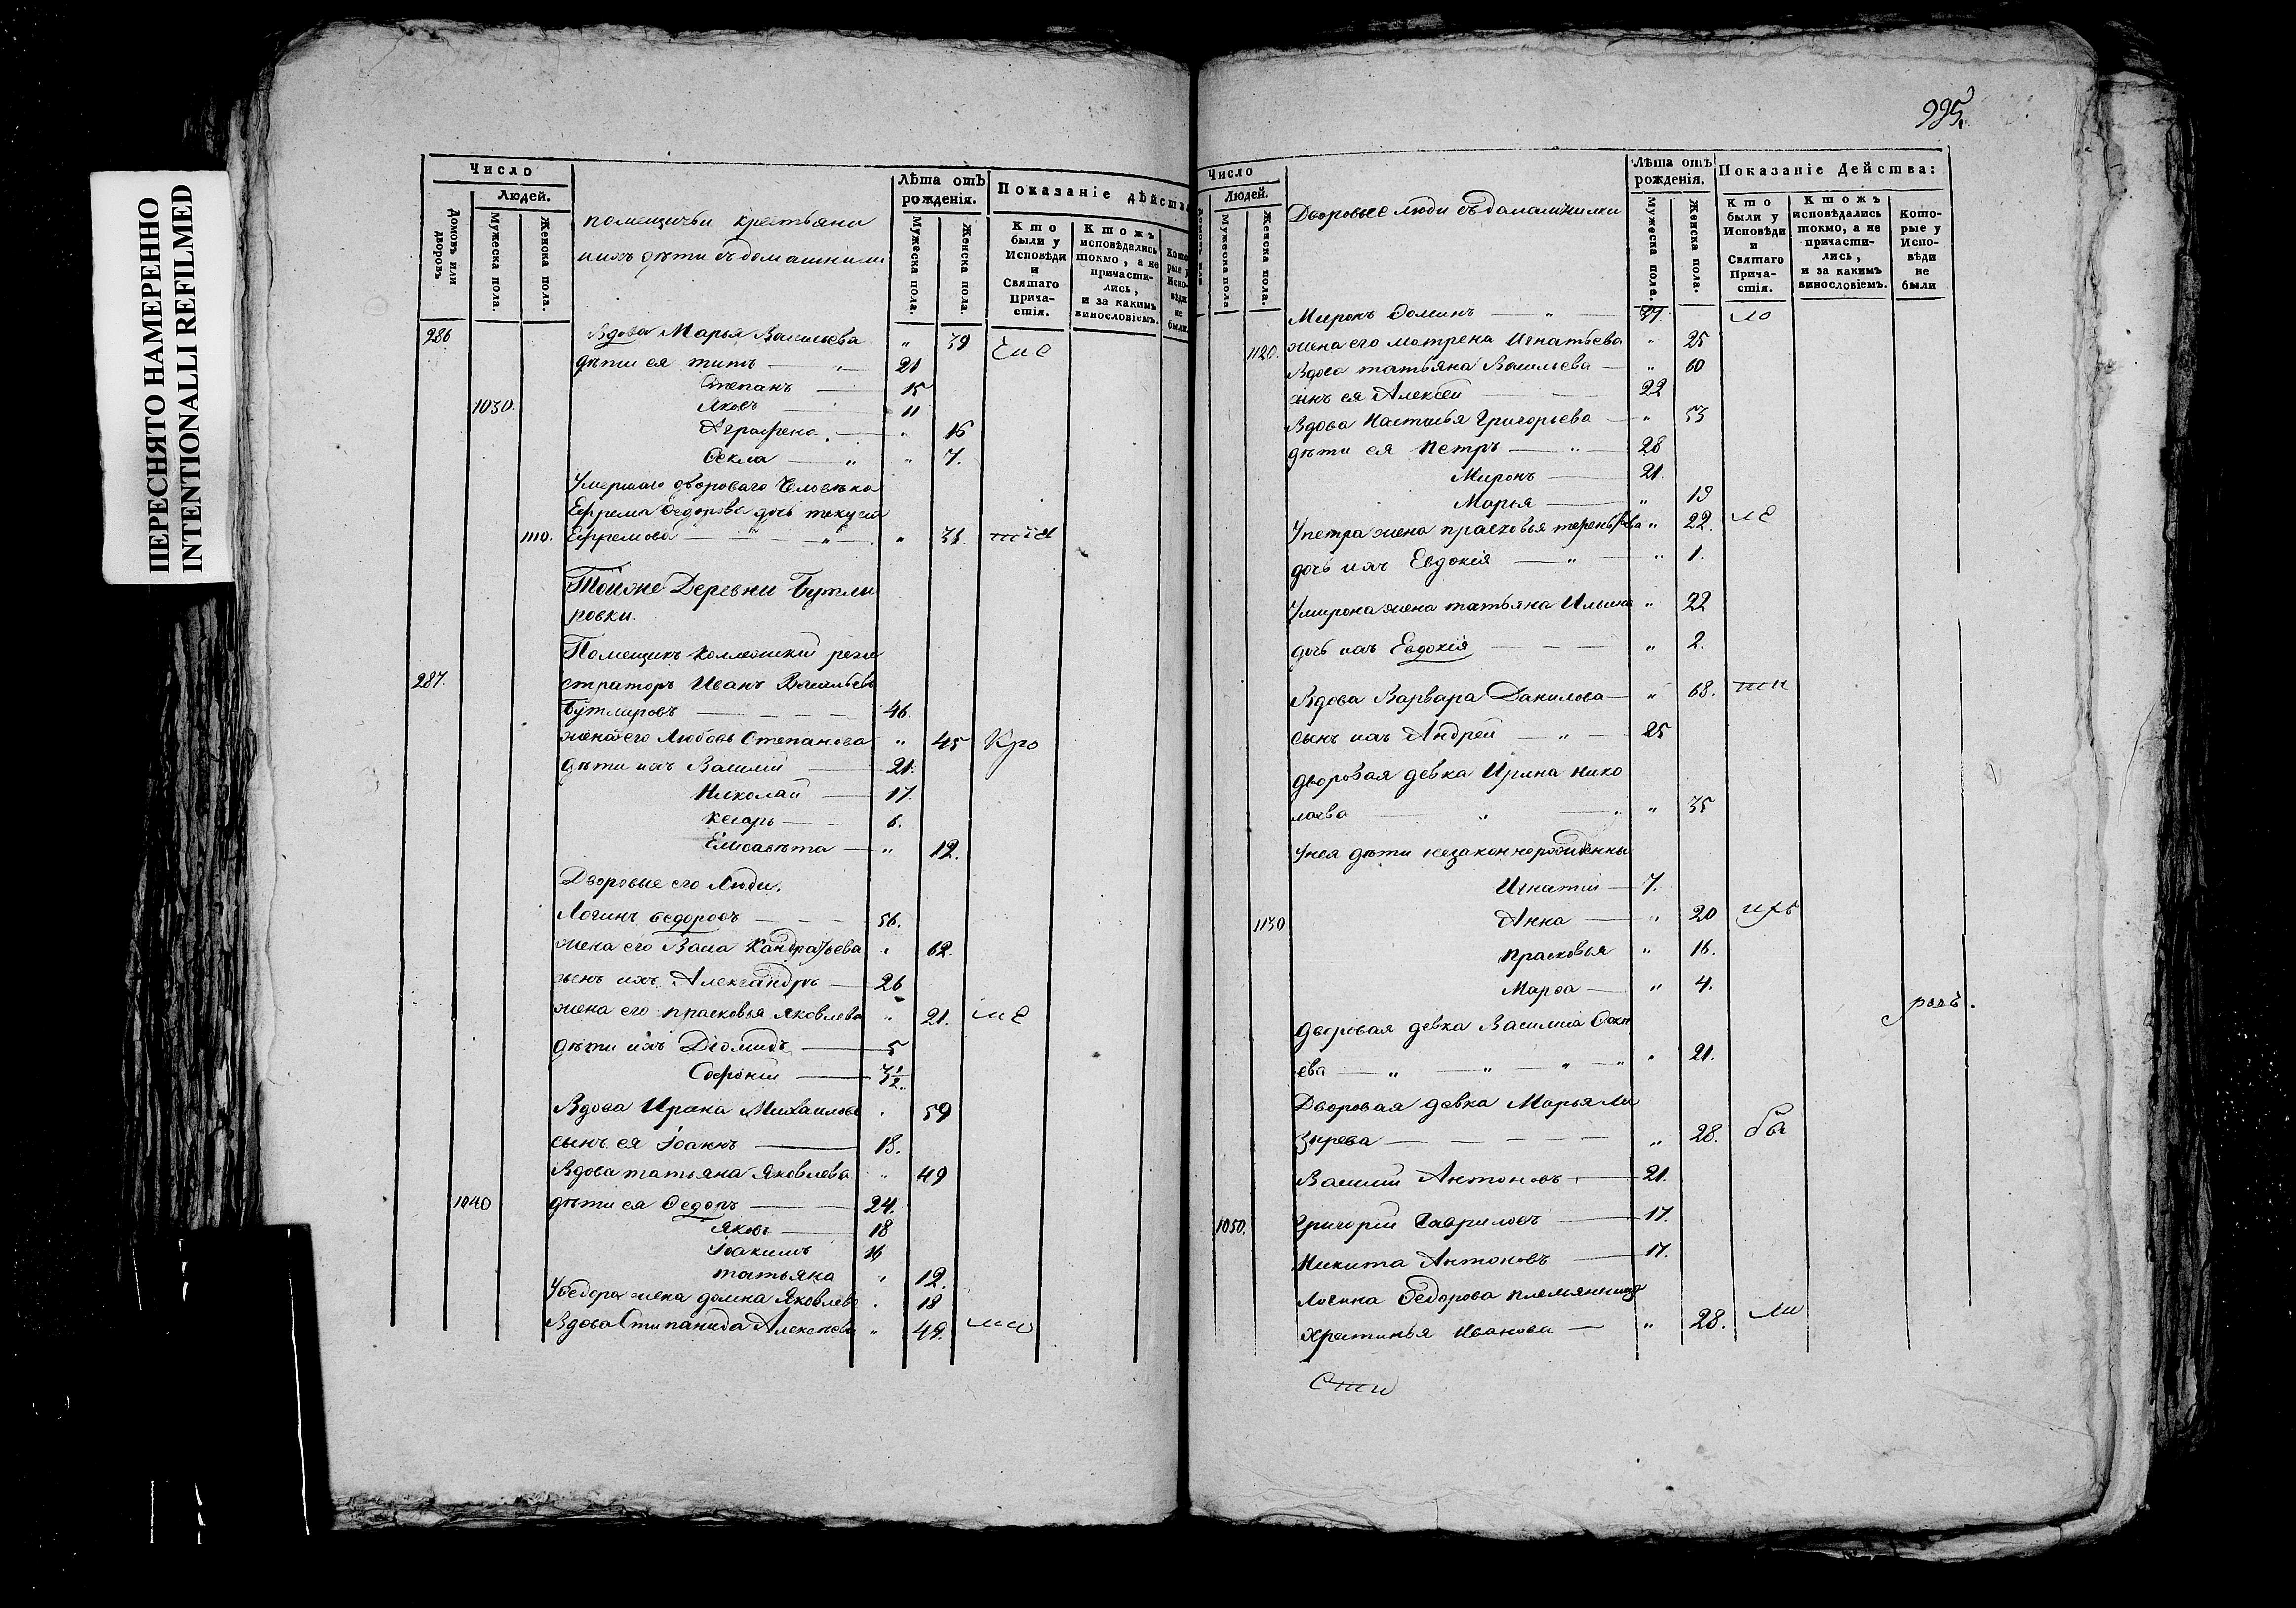 ПЕРЕСНЯТО НАМЕРЕННО
INTENTIONALLI REFILMED
Число
Людей.
Домовъ или дворовъ
Мужеска пола.
Женска пола.
помещичьи крестьяни
и ихъ дѣти съ домашними
Лѣта отъ рожденія.
Мужеска пола.
Женска пола.
Показаніе дѣйства
Кто были у Исповѣди и Святаго Прича-стія.
Ктожъ исповѣдались токмо, а не причасти-лись, и за какимъ винословіемъ.
Кото-рые у Испо-вѣди не были.
286 Вдова Марья Васильева " 39
дѣти ея титъ — " 21
Степанъ — 15
1030. Яковъ — 11
Аграфена — " 16
Ѳекла — " " 7.
Умершаго двороваго Человѣка
Ефрема Ѳедорова дочь
1110. Ефремова — " 31.
Тойже Деревни Бутли
ровки.
Помещикъ Коллежский реги
287. страторъ Иванъ Васильевъ
Бутлировъ — 46.
жена его Любовь Степанова " 45 Кро
дѣти ихъ Василій — 21.
Николай — 17.
Кесарь — 6.
Елисавѣта — " 12.
Дворовые его Люди.
Логинъ Ѳедоровъ — 56.
жена его Васа Кандратьева " 62.
сынъ ихъ Александръ — 26
жена его прасковья Яковлева " 21. ме
дѣти ихъ Діомидъ — 5
Софоній — 1/2
Вдова Ирина Михаилова " 59
сынъ ея Іоаннъ — 13.
Вдова татьяна Яковлева " 49
1040 дѣти ея Ѳедоръ — 24.
Яковъ — 18
Іоакимъ 16
татьяна " 12.
У Ѳедора жена домна Яковлева " 18
Вдова Стипанида Алексѣева " 49.
995.
Число
Людей.
Мужеска пола
Женска пола.
Дворовые люди съ домашними
Лѣта отъ рожденія.
Мужеска пола.
Женска пола.
Показаніе Действа:
Кто были у Исповѣди и Святаго Прича-стія.
Ктожъ исповѣдались токмо, а не причасти-лись, и за какимъ винословіемъ.
Кото-рые у Испо-вѣди не были
Миронъ Ѳоминъ — " — 27. ло
1120. жена его матрена Игнатьева " 25
Вдова татьяна Васильева — " 60
сынъ ея Алексей — 22
Вдова Настасья Григорьева — " 53
дѣти ея Петръ — " — 28
Миронъ — 21.
Марья — " 19
У петра жена прасковья терентьева " 22. ле
дочь ихъ Евдокія — " — " 1.
У мирона жена татьяна Ильина " 22
дочь ихъ Евдокія — " 2.
Вдова Варвара Данилова — " 68.
сынъ ихъ Андрей — " — 25
дворовая девка Ирина нико
лаева " " 35
У нея дѣти незаконнорожденныи
Игнатій — 7.
1130 Анна — " 20 ихъ
прасковья " 16.
Марѳа — " 4.
дворовая девка Василиса
ева — " — " — " — " " 21.
Дворовая девка Марья Ла
зарева — " 28. бы
Василій Антоновъ — 21.
1050. Григорій Гавриловъ — 17.
Никита Антоновъ — 17.
Логина Ѳедорова племянница
Христинья Иванова — " 28. ли